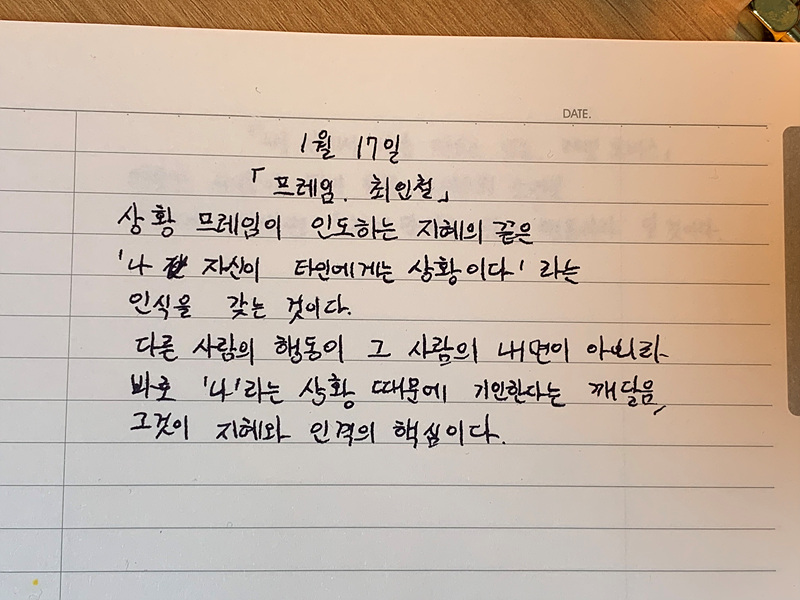 DATE.
1월 17일
「프레임. 최인철」
상황 프레임이 인도하는 지혜의 끝은
'나 자신이 타인에게는 상황이다' 라는
인식을 갖는 것이다.
다른 사람의 행동이 그 사람의 내면이 아니라
바로 '나'라는 상황 때문에 기인한다는 깨달음,
그것이 지혜와 인격의 핵심이다.